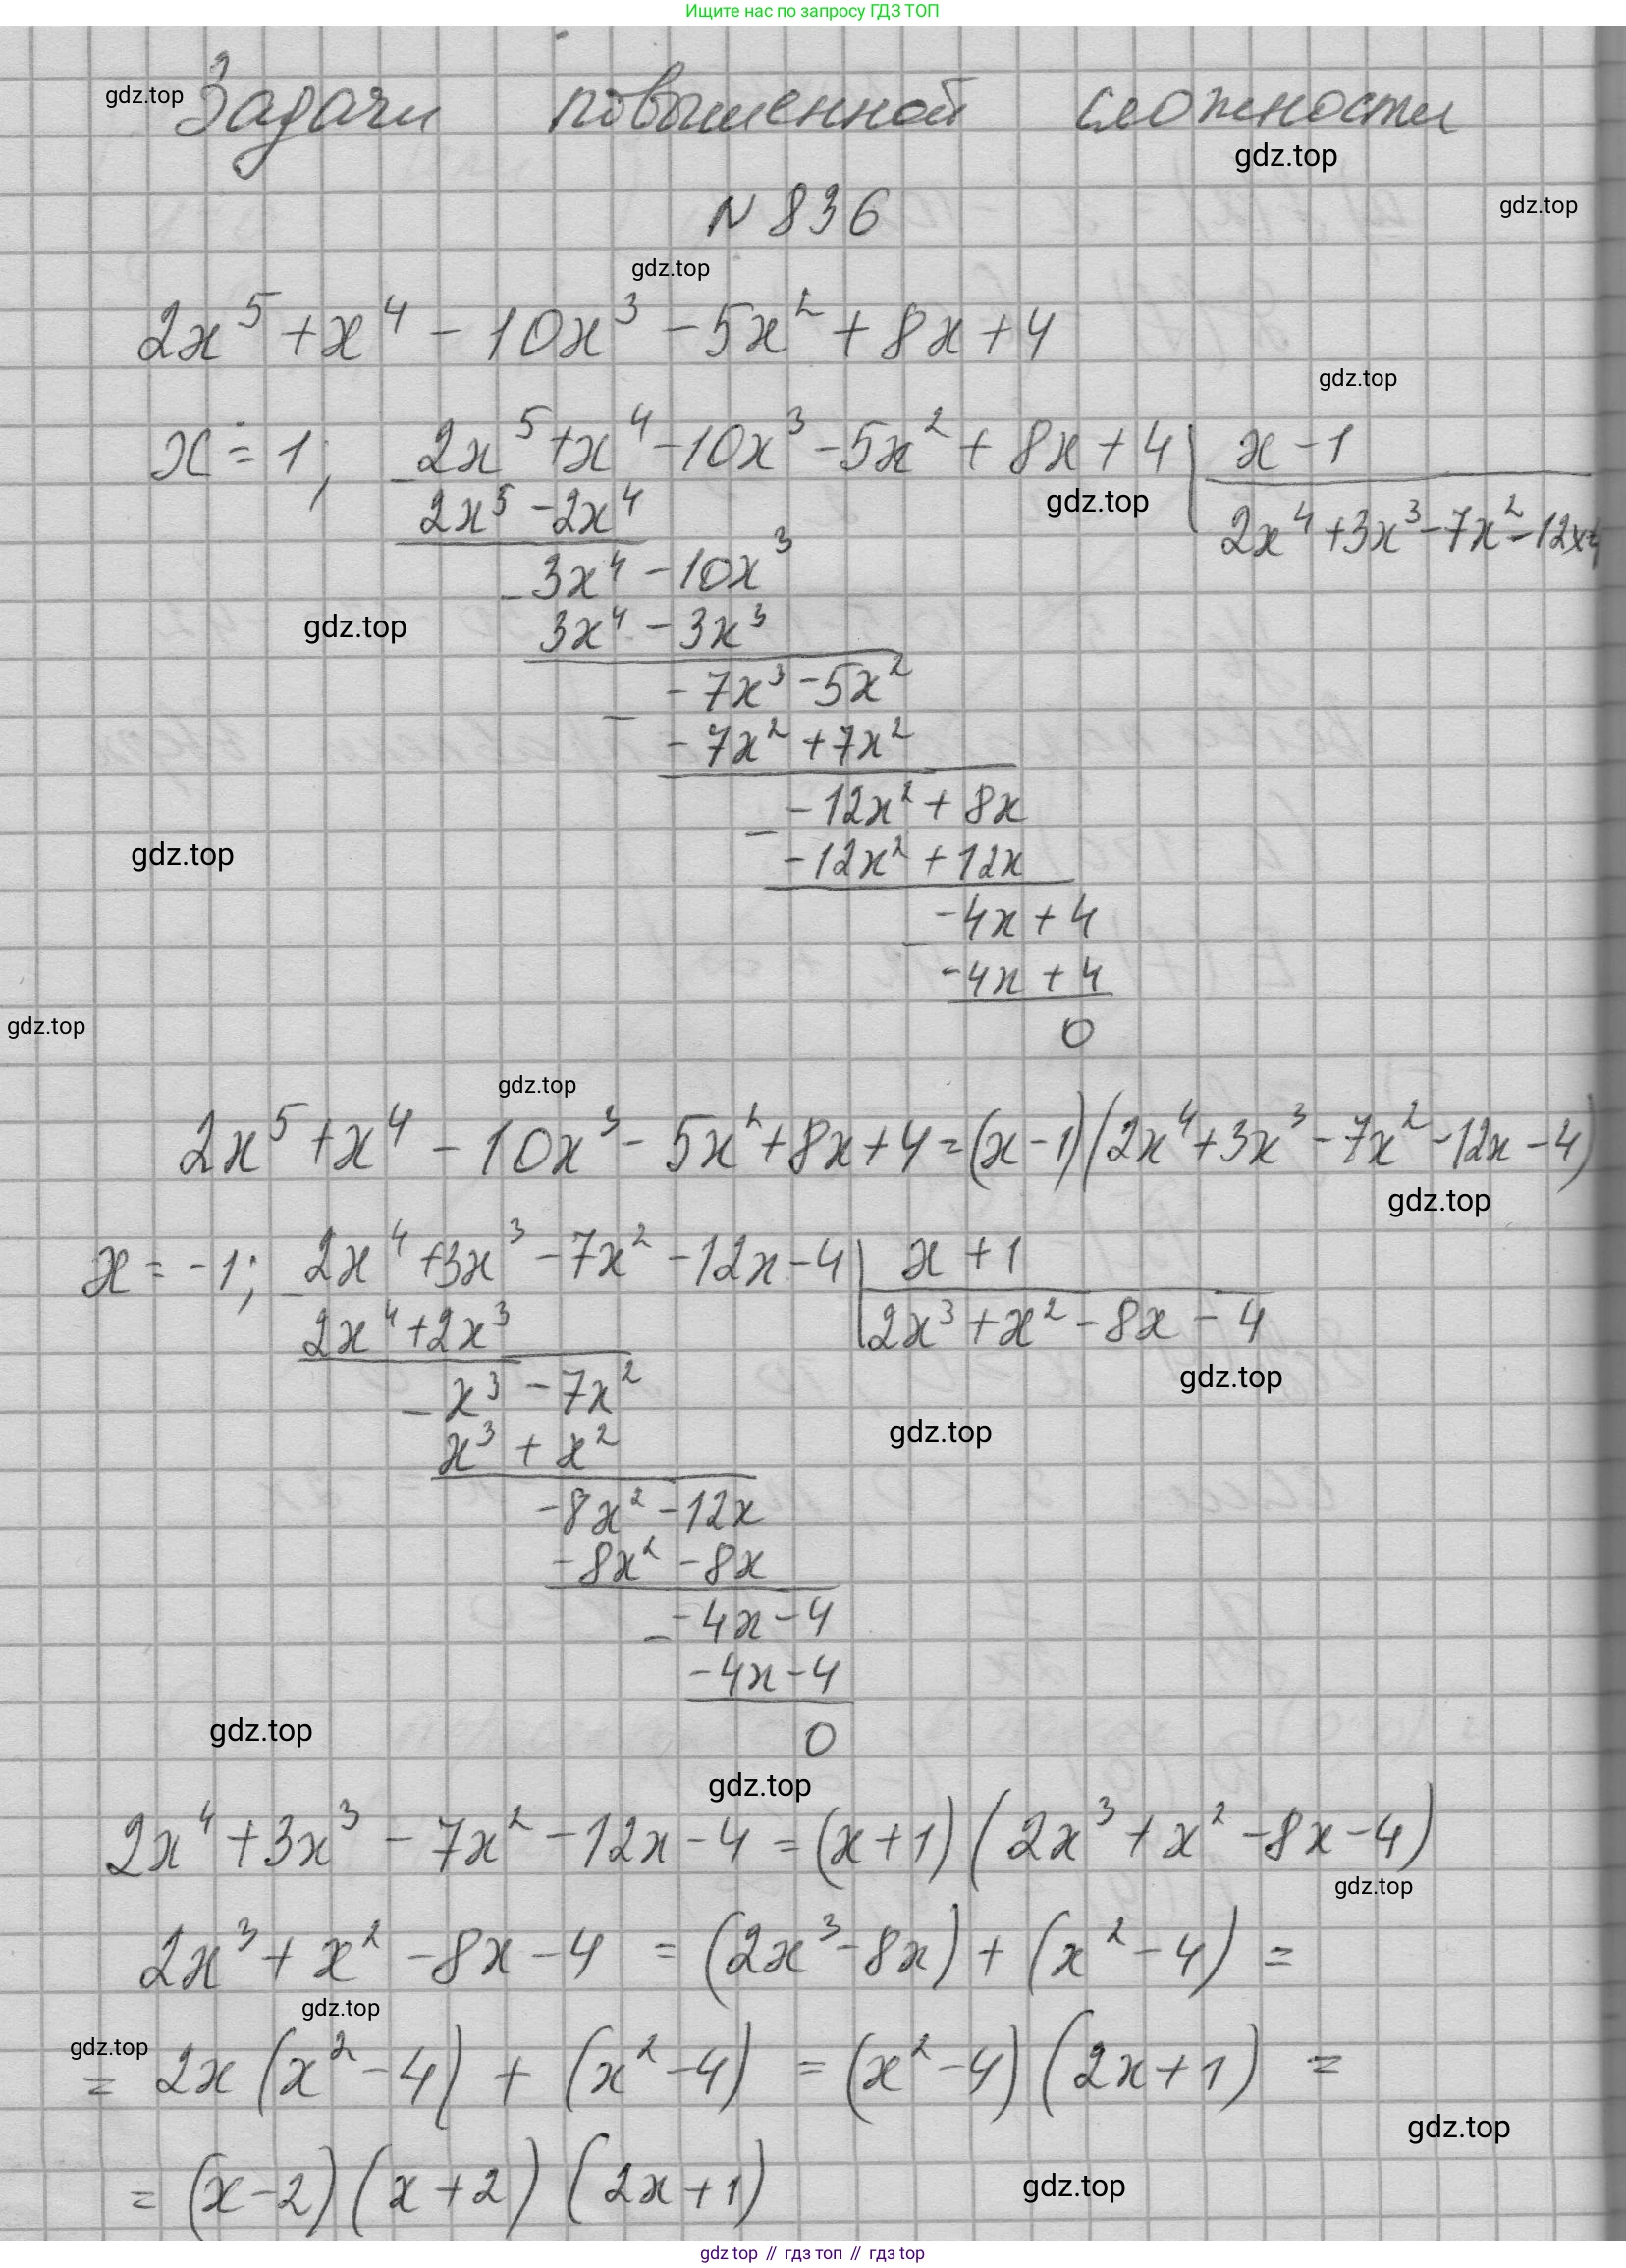 Ищите нас по запросу ГДЗ ТОП
gdz.top
Задачи повышенной сложности
gdz.top
gdz.top
N 836
gdz.top
2x⁵ + x⁴ - 10x³ - 5x² + 8x + 4
gdz.top
x = 1; - 2x⁵ + x⁴ - 10x³ - 5x² + 8x + 4 | x - 1
2x⁵ - 2x⁴ gdz.top 2x⁴ + 3x³ - 7x² - 12x - 4
- 3x⁴ - 10x³
gdz.top 3x⁴ - 3x³
- -7x³ - 5x²
-7x² + 7x²
- -12x² + 8x
gdz.top -12x² + 12x
- -4x + 4
-4x + 4
gdz.top 0
gdz.top
2x⁵ + x⁴ - 10x³ - 5x² + 8x + 4 = (x - 1)(2x⁴ + 3x³ - 7x² - 12x - 4)
gdz.top
x = -1; - 2x⁴ + 3x³ - 7x² - 12x - 4 | x + 1
2x⁴ + 2x³ 2x³ + x² - 8x - 4
- x³ - 7x² gdz.top
x³ + x² gdz.top
-8x² - 12x
-8x² - 8x
- -4x - 4
-4x - 4
gdz.top 0
gdz.top
2x⁴ + 3x³ - 7x² - 12x - 4 = (x + 1)(2x³ + x² - 8x - 4)
gdz.top
2x³ + x² - 8x - 4 = (2x³ - 8x) + (x² - 4) =
gdz.top
gdz.top
= 2x(x² - 4) + (x² - 4) = (x² - 4)(2x + 1) =
gdz.top
= (x - 2)(x + 2)(2x + 1) gdz.top
gdz top // гдз топ // гдз top